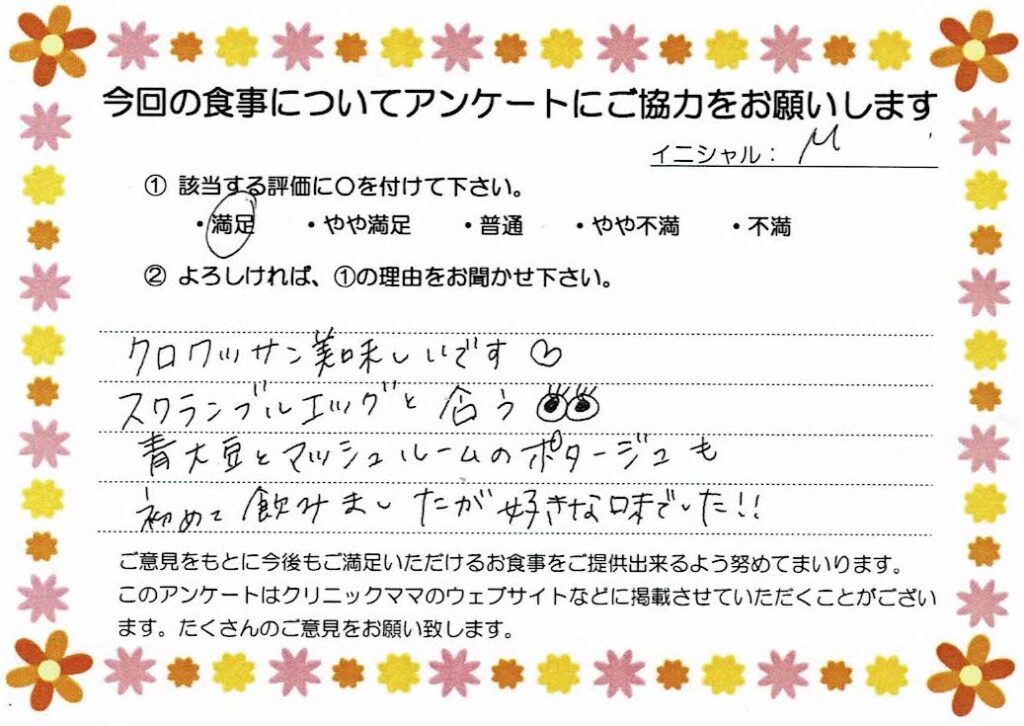 今回の食事についてアンケートにご協力をお願いします
イニシャル： M
① 該当する評価に〇を付けて下さい。
・満足 ・やや満足 ・普通 ・やや不満 ・不満
② よろしければ、①の理由をお聞かせ下さい。
クロワッサン美味しいです♡
スクランブルエッグと合う
青大豆とマッシュルームのポタージュも
初めて飲みましたが好きな味でした!!
ご意見をもとに今後もご満足いただけるお食事をご提供出来るよう努めてまいります。
このアンケートはクリニックママのウェブサイトなどに掲載させていただくことがござい
ます。たくさんのご意見をお願い致します。